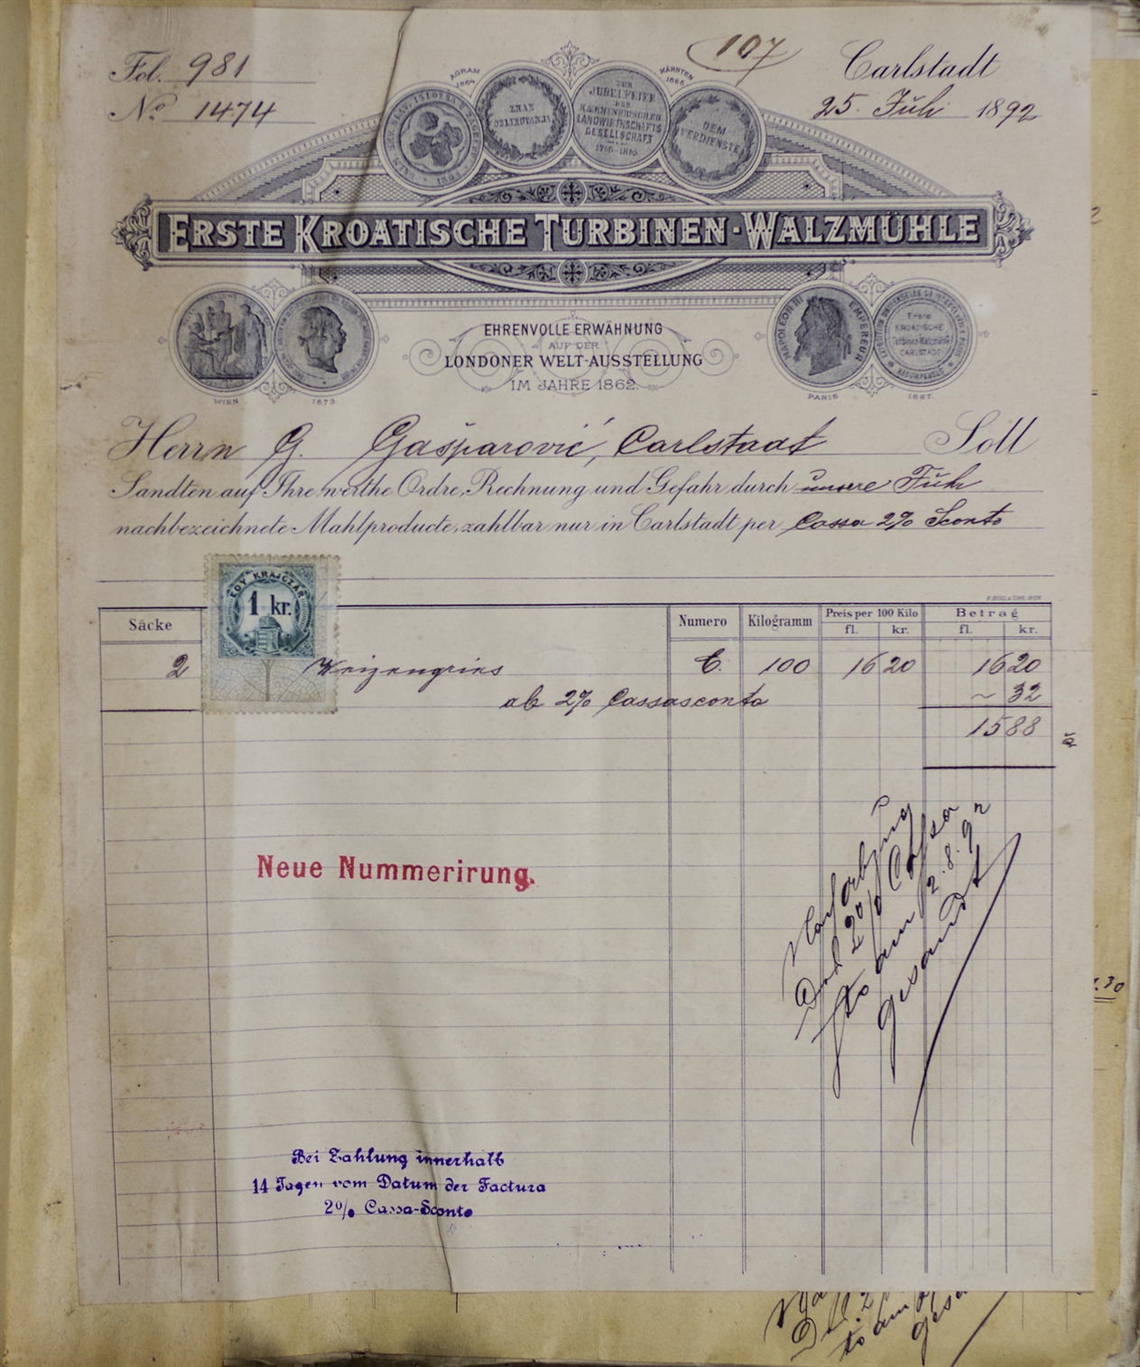 Fol. 981
107
Carlstadt
No 1474
25. Juli 1892
AGRAM 1864
KÄRNTEN 1865
ZNAK ODLIKOVANJA
ZUR JUBELFEIER DER KÄRNTNERISCHEN LANDWIRTHSCHAFTS GESELLSCHAFT
DEM VERDIENSTE
ERSTE KROATISCHE TURBINEN-WALZMÜHLE
NAPOLEON III EMPEREUR
Erste KROATISCHE Turbinen-Walzmühle CARLSTADT
EHRENVOLLE ERWÄHNUNG
AUF DER
LONDONER WELT-AUSSTELLUNG
IM JAHRE 1862.
WIEN 1873.
PARIS 1867.
Herrn G. Gašparović, Carlstadt Soll
Sandten auf Ihre werthe Ordre, Rechnung und Gefahr durch unsere Fuh
nachbezeichnete Mahlproducte, zahlbar nur in Carlstadt per Cassa 2% Sconto
EGY KRAJCZÁR
1 kr.
Säcke Numero Kilogramm Preis per 100 Kilo Betrag
fl. kr. fl. kr.
2 Weizengries C. 100 16 20 16 20
ab 2% Cassasconto ~ 32
15 88
Neue Nummerirung.
2% Cassa
am 2.8.92
gesandt
Bei Zahlung innerhalb
14 Tagen vom Datum der Factura
2% Cassa-Sconto